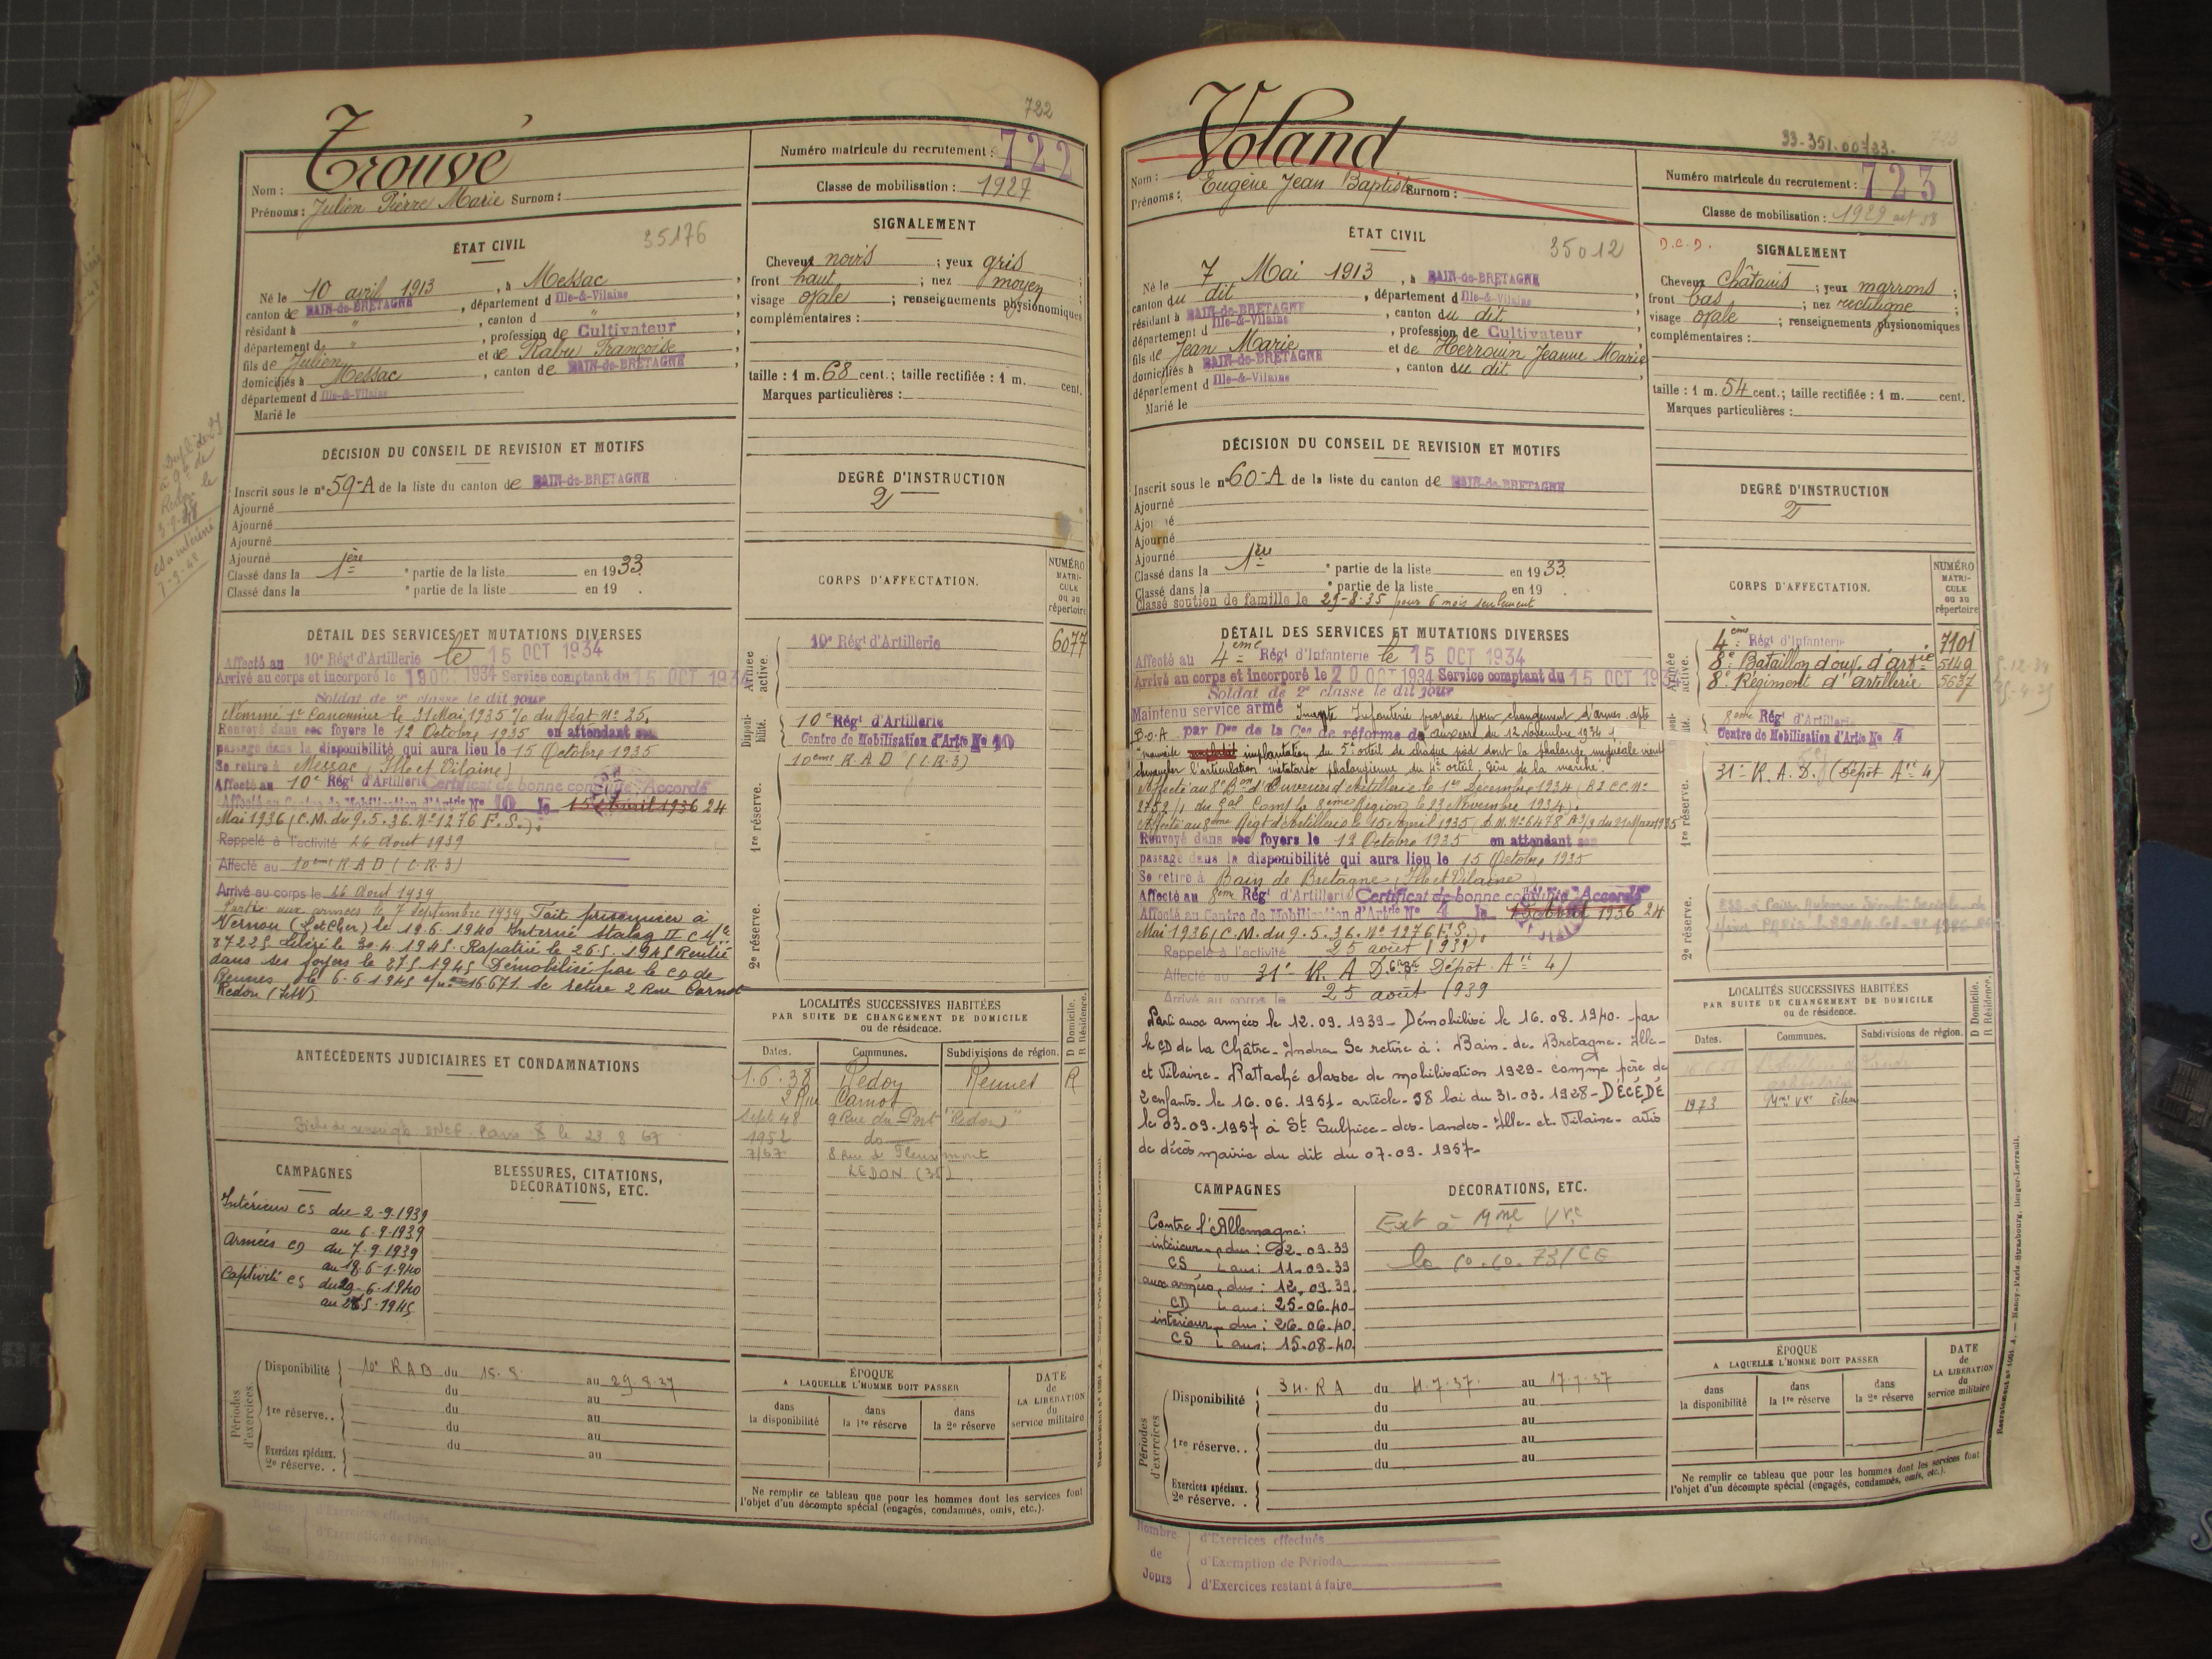 722
Trouvé
Nom :
Prénoms : Julien Pierre Marie Surnom :
Numéro matricule du recrutement : 722
Classe de mobilisation : 1927
ÉTAT CIVIL
35176
Né le 10 avril 1913, à Messac,
canton de BAIN-de-BRETAGNE, département d Ille-&-Vilaine,
résidant à ", canton d ",
département d ", profession de Cultivateur,
fils de Julien et de Rabu Françoise,
domiciliés à Messac, canton de BAIN-de-BRETAGNE,
département d Ille-&-Vilaine
Marié le
SIGNALEMENT
Cheveux noirs ; yeux gris ;
front haut ; nez moyen ;
visage ovale ; renseignements physionomiques
complémentaires :
taille : 1 m. 68 cent.; taille rectifiée : 1 m. cent.
Marques particulières :
DÉCISION DU CONSEIL DE REVISION ET MOTIFS
Inscrit sous le n° 59-A de la liste du canton de BAIN-de-BRETAGNE
Ajourné
Ajourné
Ajourné
Ajourné
Classé dans la 1ère partie de la liste en 1933.
Classé dans la partie de la liste en 19 .
DEGRÉ D'INSTRUCTION
2
CORPS D'AFFECTATION.
NUMÉRO MATRICULE ou au répertoire
Armée active.
10e Régt d'Artillerie 6077
Disponibilité.
10e Régt d'Artillerie
Centre de Mobilisation d'Artie No 10
1re réserve.
10eme R A D (C.R.3)
2e réserve.
DÉTAIL DES SERVICES ET MUTATIONS DIVERSES
Affecté au 10e Régt d'Artillerie le 15 OCT 1934
Arrivé au corps et incorporé le 19 OCT 1934 Service comptant du 15 OCT 1934
Soldat de 2e classe le dit jour
Nommé 1er Canonnier le 31 Mai 1935 % du Régt No 25.
Renvoyé dans ses foyers le 12 Octobre 1935 en attendant son
passage dans la disponibilité qui aura lieu le 15 Octobre 1935
Se retire à Messac (Ille et Vilaine)
Affecté au 10e Régt d'Artillerie Certificat de bonne conduite "Accordé"
Affecté au Centre de Mobilisation d'Artrie No 10 le 15 Avril 1936 24
Mai 1936 (C.M. du 9.5.36. No 1276 F.S.).
Rappelé à l'activité 26 Aout 1939
Affecté au 10eme R A D (C.R.3)
Arrivé au corps le 26 Aout 1939
Partie aux armées le 7 Septembre 1939. Fait prisonnier à
Vernou (Let Cher) le 19.6.1940 Interné Stalag II C Mle
87225 Libéré le 30.4.1945. Rapatrié le 26.5.1945 Rentré
dans ses foyers le 27.5.1945 Démobilisé par le CD de
Rennes le 6-6-1945 s/no 16671 se retire 2 Rue Carnot
Redon (I&V)
ANTÉCÉDENTS JUDICIAIRES ET CONDAMNATIONS
Fiche de renseigts SNCF. Paris le 23 8 67
LOCALITÉS SUCCESSIVES HABITÉES
PAR SUITE DE CHANGEMENT DE DOMICILE
ou de résidence.
Dates. Communes. Subdivisions de région. D Domicile. R Résidence.
1.6.38 Redon Rennes R
2 Rue Carnot
Sept 48 9 Rue du Port "Redon"
1952 do
7/67 8 Rue de Fleurimont
REDON (35)
CAMPAGNES
Intérieur CS du 2-9-1939
au 6-9-1939
Armées CD du 7.9.1939
au 18.6-1940
Captivité CS du 19.6.1940
au 26.5.1945
BLESSURES, CITATIONS,
DÉCORATIONS, ETC.
Périodes d'exercices.
Disponibilité 10e RAD du 18.8. au 29.8.37
du au
1re réserve. . du au
du au
du au
Exercices spéciaux.
2e réserve. .
ÉPOQUE
A LAQUELLE L'HOMME DOIT PASSER
dans la disponibilité
dans la 1re réserve
dans la 2e réserve
DATE de LA LIBÉRATION du service militaire
Ne remplir ce tableau que pour les hommes dont les services font
l'objet d'un décompte spécial (engagés, condamnés, omis, etc.).
Nombre de Jours
d'Exercices effectués
d'Exemption de Période
d'Exercices restant à faire
33-351.00733-
723
Voland
Nom :
Prénoms : Eugène Jean Baptiste Surnom :
Numéro matricule du recrutement : 723
Classe de mobilisation : 1929 art 58
D.C.D.
ÉTAT CIVIL
35012
Né le 7 Mai 1913, à BAIN-de-BRETAGNE
canton du dit, département d Ille-&-Vilaine,
résidant à BAIN-de-BRETAGNE, canton du dit,
département d Ille-&-Vilaine, profession de Cultivateur,
fils de Jean Marie et de Herrouin Jeanne Marie
domiciliés à BAIN-de-BRETAGNE, canton du dit,
département d Ille-&-Vilaine
Marié le
SIGNALEMENT
Cheveux châtains ; yeux marrons ;
front bas ; nez rectiligne ;
visage ovale ; renseignements physionomiques
complémentaires :
taille : 1 m. 54 cent.; taille rectifiée : 1 m. cent.
Marques particulières :
DÉCISION DU CONSEIL DE REVISION ET MOTIFS
Inscrit sous le n° 60-A de la liste du canton de BAIN-de-BRETAGNE
Ajourné
Ajourné
Ajourné
Ajourné
Classé dans la 1ère partie de la liste en 1933.
Classé dans la partie de la liste en 19 .
Classé soutien de famille le 29-8-35 pour 6 mois seulement
DEGRÉ D'INSTRUCTION
2
CORPS D'AFFECTATION.
NUMÉRO MATRICULE ou au répertoire
Armée active.
4eme Régt d'Infanterie 7101
8e Bataillon d'ouv. d'artie 5149
8e Régiment d'artillerie 5637
8eme Régt d'Artillerie
Centre de Mobilisation d'Artie No 4
1re réserve.
31e R.A.D. (Dépôt Aie 4)
2e réserve.
DÉTAIL DES SERVICES ET MUTATIONS DIVERSES
Affecté au 4eme Régt d'Infanterie le 15 OCT 1934
Arrivé au corps et incorporé le 20 OCT 1934 Service comptant du 15 OCT 1934
Soldat de 2e classe le dit jour
Maintenu service armé Inapte Infanterie proposé pour changement d'armes. apte
B.O.A. par Don de la Con de réforme de Auxerre du 12 novembre 1934
"mauvaise implantation du 5e orteil de chaque pied dont la phalange unguéale vient
chevaucher l'articulation métatarso phalangienne du 4e orteil. Gêne de la marche.
Affecté au 8e Bon d'Ouvriers d'Artillerie le 1er Décembre 1934
2752/1 du Gal Comdt la 8eme Région le 23 Novembre 1934).
Affecté au 8eme Régt d'Artillerie le 15 Avril 1935 (D.M. No 6478 du 21 Mars 1935
Renvoyé dans ses foyers le 12 Octobre 1935 en attendant son
passage dans la disponibilité qui aura lieu le 15 Octobre 1935
Se retire à Bain de Bretagne (Ille et Vilaine)
Affecté au 8eme Régt d'Artillerie Certificat de bonne conduite "Accordé"
Affecté au Centre de Mobilisation d'Artrie No 4 le 15 Avril 1936 24
Mai 1936 (C.M. du 9.5.36. No 1276 F.S.).
Rappelé à l'activité 25 août 1939
Affecté au 31e R.A.D. Dépôt Aie 4)
Arrivé au corps le 25 août 1939
Parti aux armées le 12.09.1939 - Démobilisé le 16.08.1940 - par
le CD de la Châtre - Indre Se retire à : Bain-de-Bretagne - Ille-
et Vilaine - Rattaché classe de mobilisation 1929 - comme père de
2 enfants. le 16.06.1951 - article 58 loi du 31-03-1928 - DÉCÉDÉ
le 03-09-1957 à St Sulpice-des-Landes-Ille-et-Vilaine - avis
de décès mairie du dit du 07-09-1957-
LOCALITÉS SUCCESSIVES HABITÉES
PAR SUITE DE CHANGEMENT DE DOMICILE
ou de résidence.
Dates. Communes. Subdivisions de région. D Domicile. R Résidence.
1973 Mme Vve
CAMPAGNES
Contre l'Allemagne :
intérieur du : 02-09-39
CS au : 11-09-39
aux armées du : 12-09-39
CD au : 25-06-40
intérieur du : 26-06-40
CS au : 15-08-40
DÉCORATIONS, ETC.
Ext à Mme Vve
le 10.10.73/CE
Périodes d'exercices
Disponibilité 34. RA du 4.7.37. au 17.7.37
du au
1re réserve. . du au
du au
du au
Exercices spéciaux.
2e réserve. .
ÉPOQUE
A LAQUELLE L'HOMME DOIT PASSER
dans la disponibilité
dans la 1re réserve
dans la 2e réserve
DATE de LA LIBÉRATION du service militaire
Ne remplir ce tableau que pour les hommes dont les services font
l'objet d'un décompte spécial (engagés, condamnés, omis, etc.).
Nombre de Jours
d'Exercices effectués
d'Exemption de Période
d'Exercices restant à faire